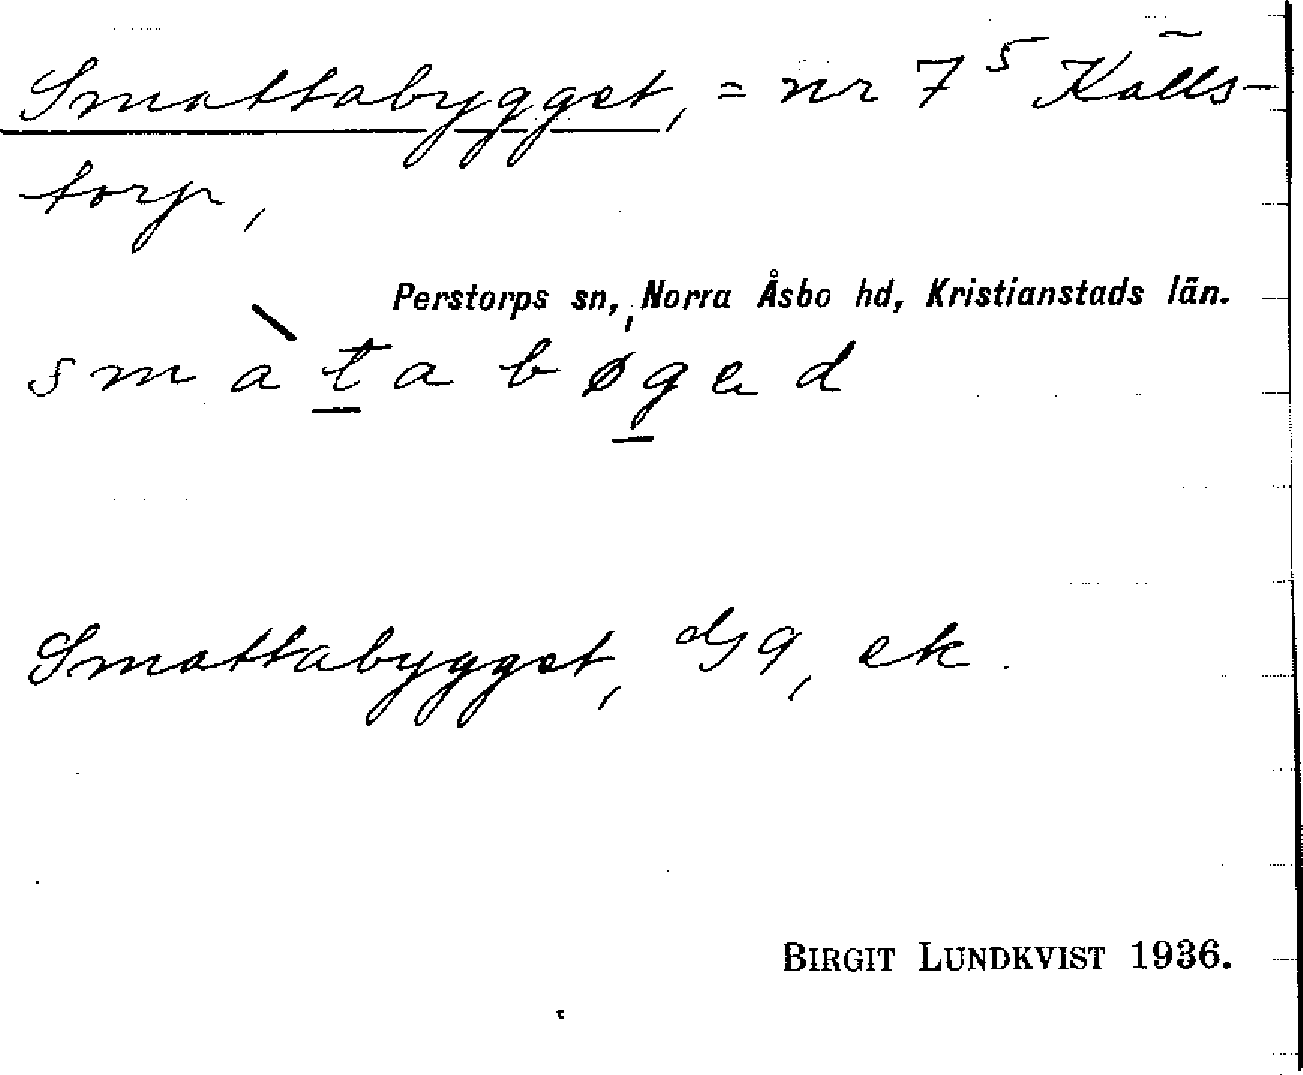 Smattabygget, = nr 7⁵ Källs-
torp,
Perstorps sn, Norra Åsbo hd, Kristianstads län.
smàtabøgad
Smattabygget, 9, ek.
BIRGIT LUNDKVIST 1936.